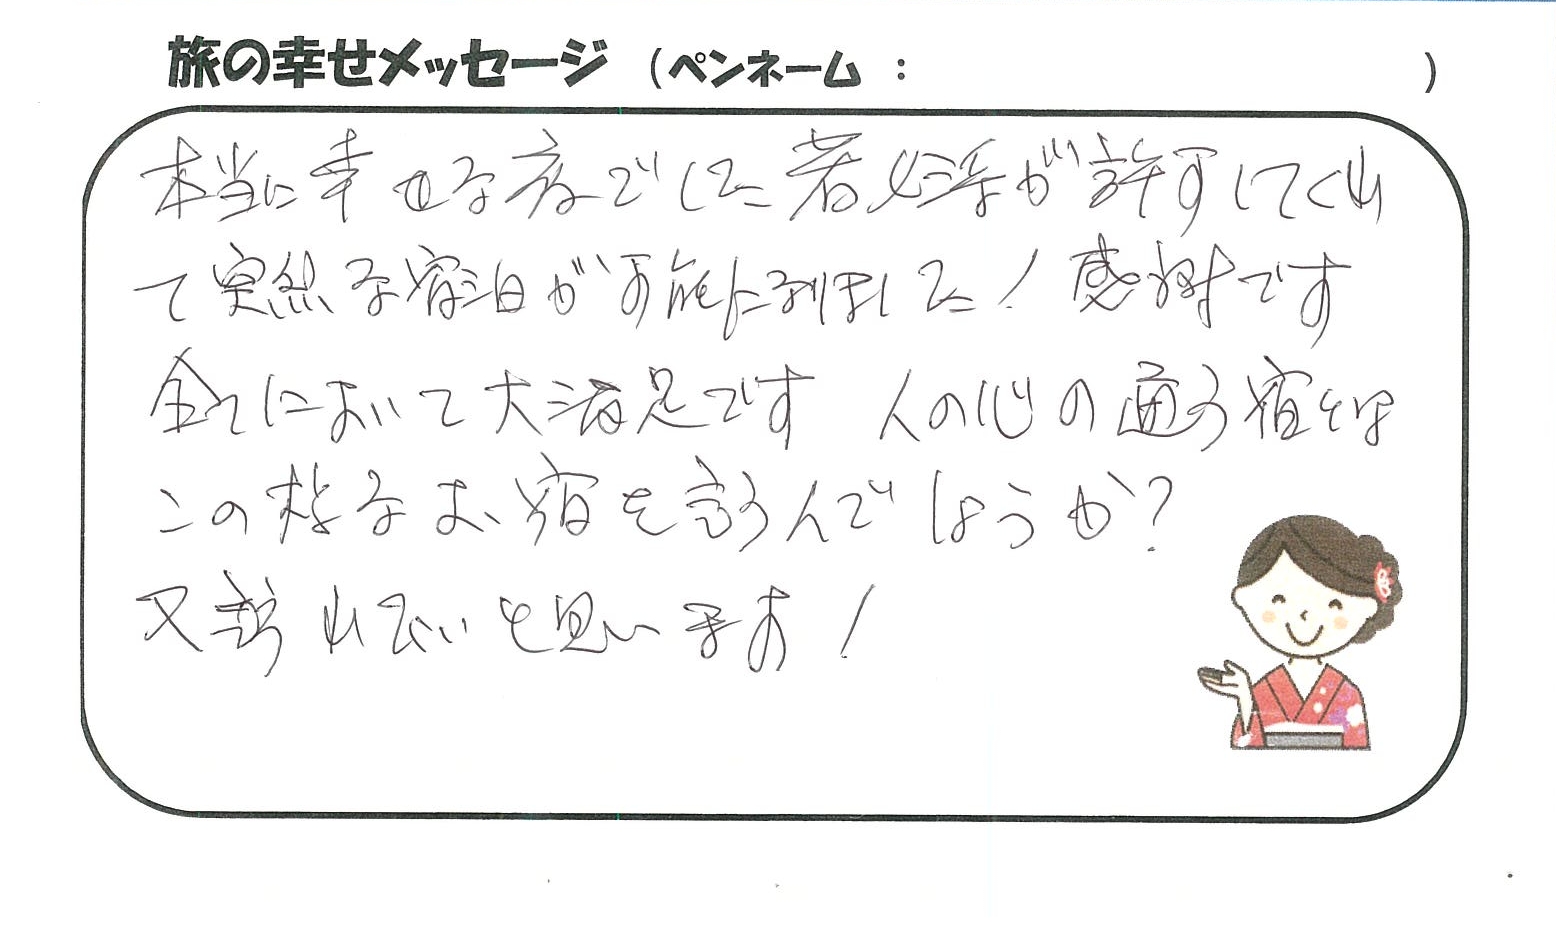 旅の幸せメッセージ (ペンネーム : )
本当に幸せな夜でした 若女将が許すしてくれ
て突然な宿泊が可能になりました! 感謝です
全てにおいて大満足です 人の心の通う宿とは
この様なお宿を言うんでしょうか?
又訪れたいと思います!